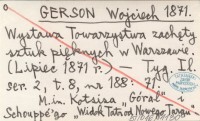 GERSON Wojciech 1871.
Wystawa Towarzystwa zachęty
sztuk pięknych w Warszawie.
(Lipiec 1871 r.) — Tyg. Il.
ser. 2, t. 8, nr 188.
M. in. Kotsisa „Góral"
Schouppé'go „Widok Tatr od Nowego Targu"